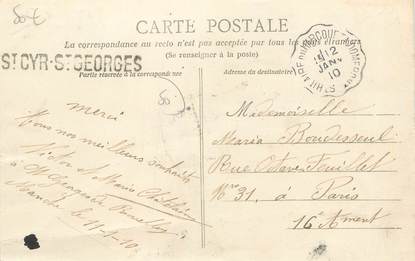 80€
CARTE POSTALE
La correspondance au recto n'est pas acceptée par tous les pays étrangers
(Se renseigner à la poste)
ST CYR-ST GEORGES
Partie réservée à la correspondance
Adresse du destinataire
12
JANV
10
80
merci
Vous nos meilleurs souhaits
Victor et Maria
Manche le 11-1-10
Mademoiselle
Maria Boudesseul
Rue Octave Feuillet
Nro 31. à Paris
16 Arment